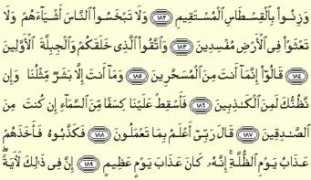 وَزِنُوا۟ بِٱلْقِسْطَاسِ ٱلْمُسْتَقِيمِ ١٨٢ وَلَا تَبْخَسُوا۟ ٱلنَّاسَ أَشْيَآءَهُمْ وَلَا
تَعْثَوْا۟ فِى ٱلْأَرْضِ مُفْسِدِينَ ١٨٣ وَٱتَّقُوا۟ ٱلَّذِى خَلَقَكُمْ وَٱلْجِبِلَّةَ ٱلْأَوَّلِينَ
١٨٤ قَالُوٓا۟ إِنَّمَآ أَنتَ مِنَ ٱلْمُسَحَّرِينَ ١٨٥ وَمَآ أَنتَ إِلَّا بَشَرٌ مِّثْلُنَا وَإِن
نَّظُنُّكَ لَمِنَ ٱلْكَـٰذِبِينَ ١٨٦ فَأَسْقِطْ عَلَيْنَا كِسَفًا مِّنَ ٱلسَّمَآءِ إِن كُنتَ مِنَ
ٱلصَّـٰدِقِينَ ١٨٧ قَالَ رَبِّىٓ أَعْلَمُ بِمَا تَعْمَلُونَ ١٨٨ فَكَذَّبُوهُ فَأَخَذَهُمْ
عَذَابُ يَوْمِ ٱلظُّلَّةِ إِنَّهُۥ كَانَ عَذَابَ يَوْمٍ عَظِيمٍ ١٨٩ إِنَّ فِى ذَٰلِكَ لَـَٔايَةً